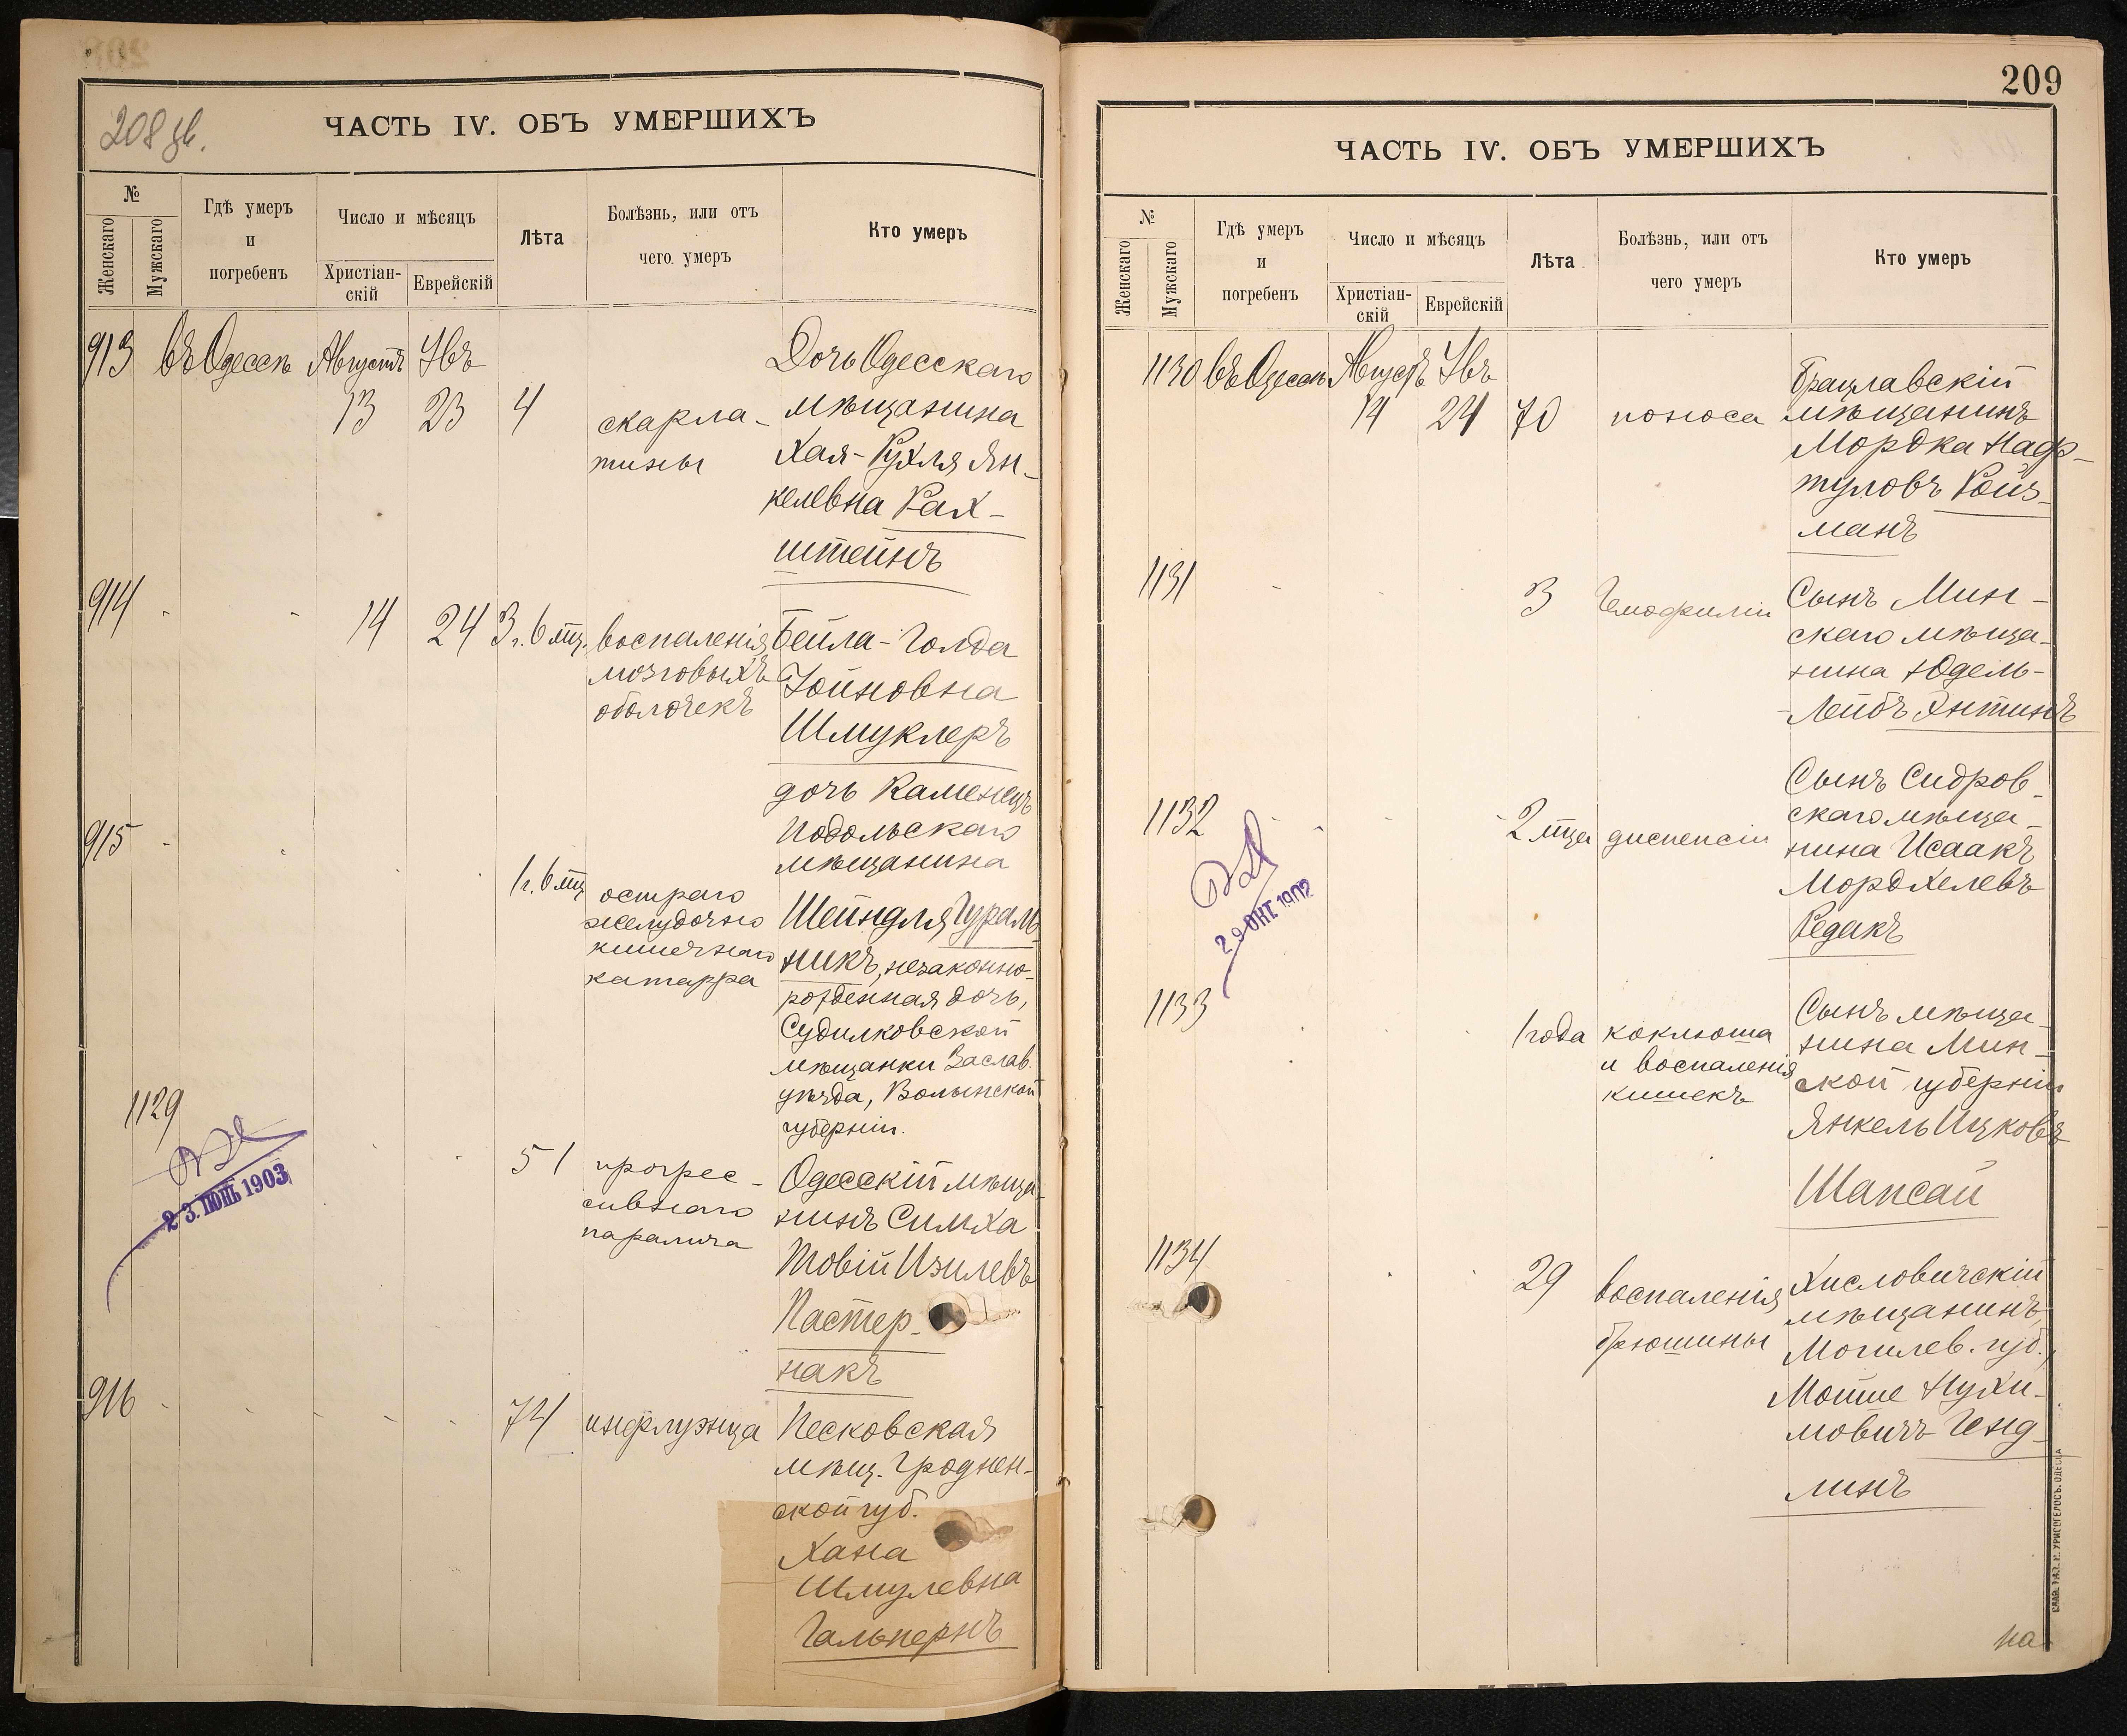 208 об.
ЧАСТЬ IV. ОБЪ УМЕРШИХЪ
№
Женскаго
Мужскаго
Гдѣ умеръ
и
погребенъ
Число и мѣсяцъ
Христіан-
скій
Еврейскій
Лѣта
Болѣзнь, или отъ
чего умеръ
Кто умеръ
913 въ Одессѣ Августъ Увъ
13 23 4
скарла-
тины
Дочь Одесскаго
мѣщанина
Хая-Рухля Ян-
келевна Рах-
штейнъ
914 - - 14 24 3 г. 6 мц.
воспаленія
мозговыхъ
оболочекъ
Бейла-Голда
Іойновна
Шмуклеръ
дочь Каменецъ
Подольскаго
мѣщанина
915 - - 1 г. 6 мц
остраго
желудочно
кишечнаго
катарра
Шейндля Гураль-
никъ, незаконно-
рожденная дочь,
Судилковской
мѣщанки Заслав.
уѣзда, Волынской
губерніи.
1129
23. ІЮНЬ 1903
51
прогрес-
сивнаго
паралича
Одесскій мѣща-
нинъ Симха
Товій Изилевъ
Пастер-
накъ
916 - - - - - 74 инфлуэнца
Песковская
мѣщ. Гроднен-
ской губ.
Хана
Шмулевна
Гальпернъ
209
ЧАСТЬ IV. ОБЪ УМЕРШИХЪ
№
Женскаго
Мужскаго
Гдѣ умеръ
и
погребенъ
Число и мѣсяцъ
Христіан-
скій
Еврейскій
Лѣта
Болѣзнь, или отъ
чего умеръ
Кто умеръ
1130 въ Одессѣ Августъ Увъ
14 24 70 поноса
Брацлавскій
мѣщанинъ
Мордка Наф-
туловъРойз-
манъ
1131 - 3 Гемофиліи
Сынъ Мин-
скаго мѣща-
нина Юдель-
Лейбъ Энтинъ
1132 - - - 2 мца диспепсіи
29 ОКТ 1902
Сынъ Сидров-
скаго мѣща-
нина Исаакъ
Мордхелевъ
Редакъ
1133
1 года
коклюша
и воспаленія
кишекъ
Сынъ мѣща-
нина Мин-
ской губерніи
Янкель Ицковъ
Шапсай
1134
29
воспаленія
брюшины
Хисловичскій
мѣщанинъ,
Могилев. губ.,
Мотше Нухи-
мовичъ Генд-
линъ
на